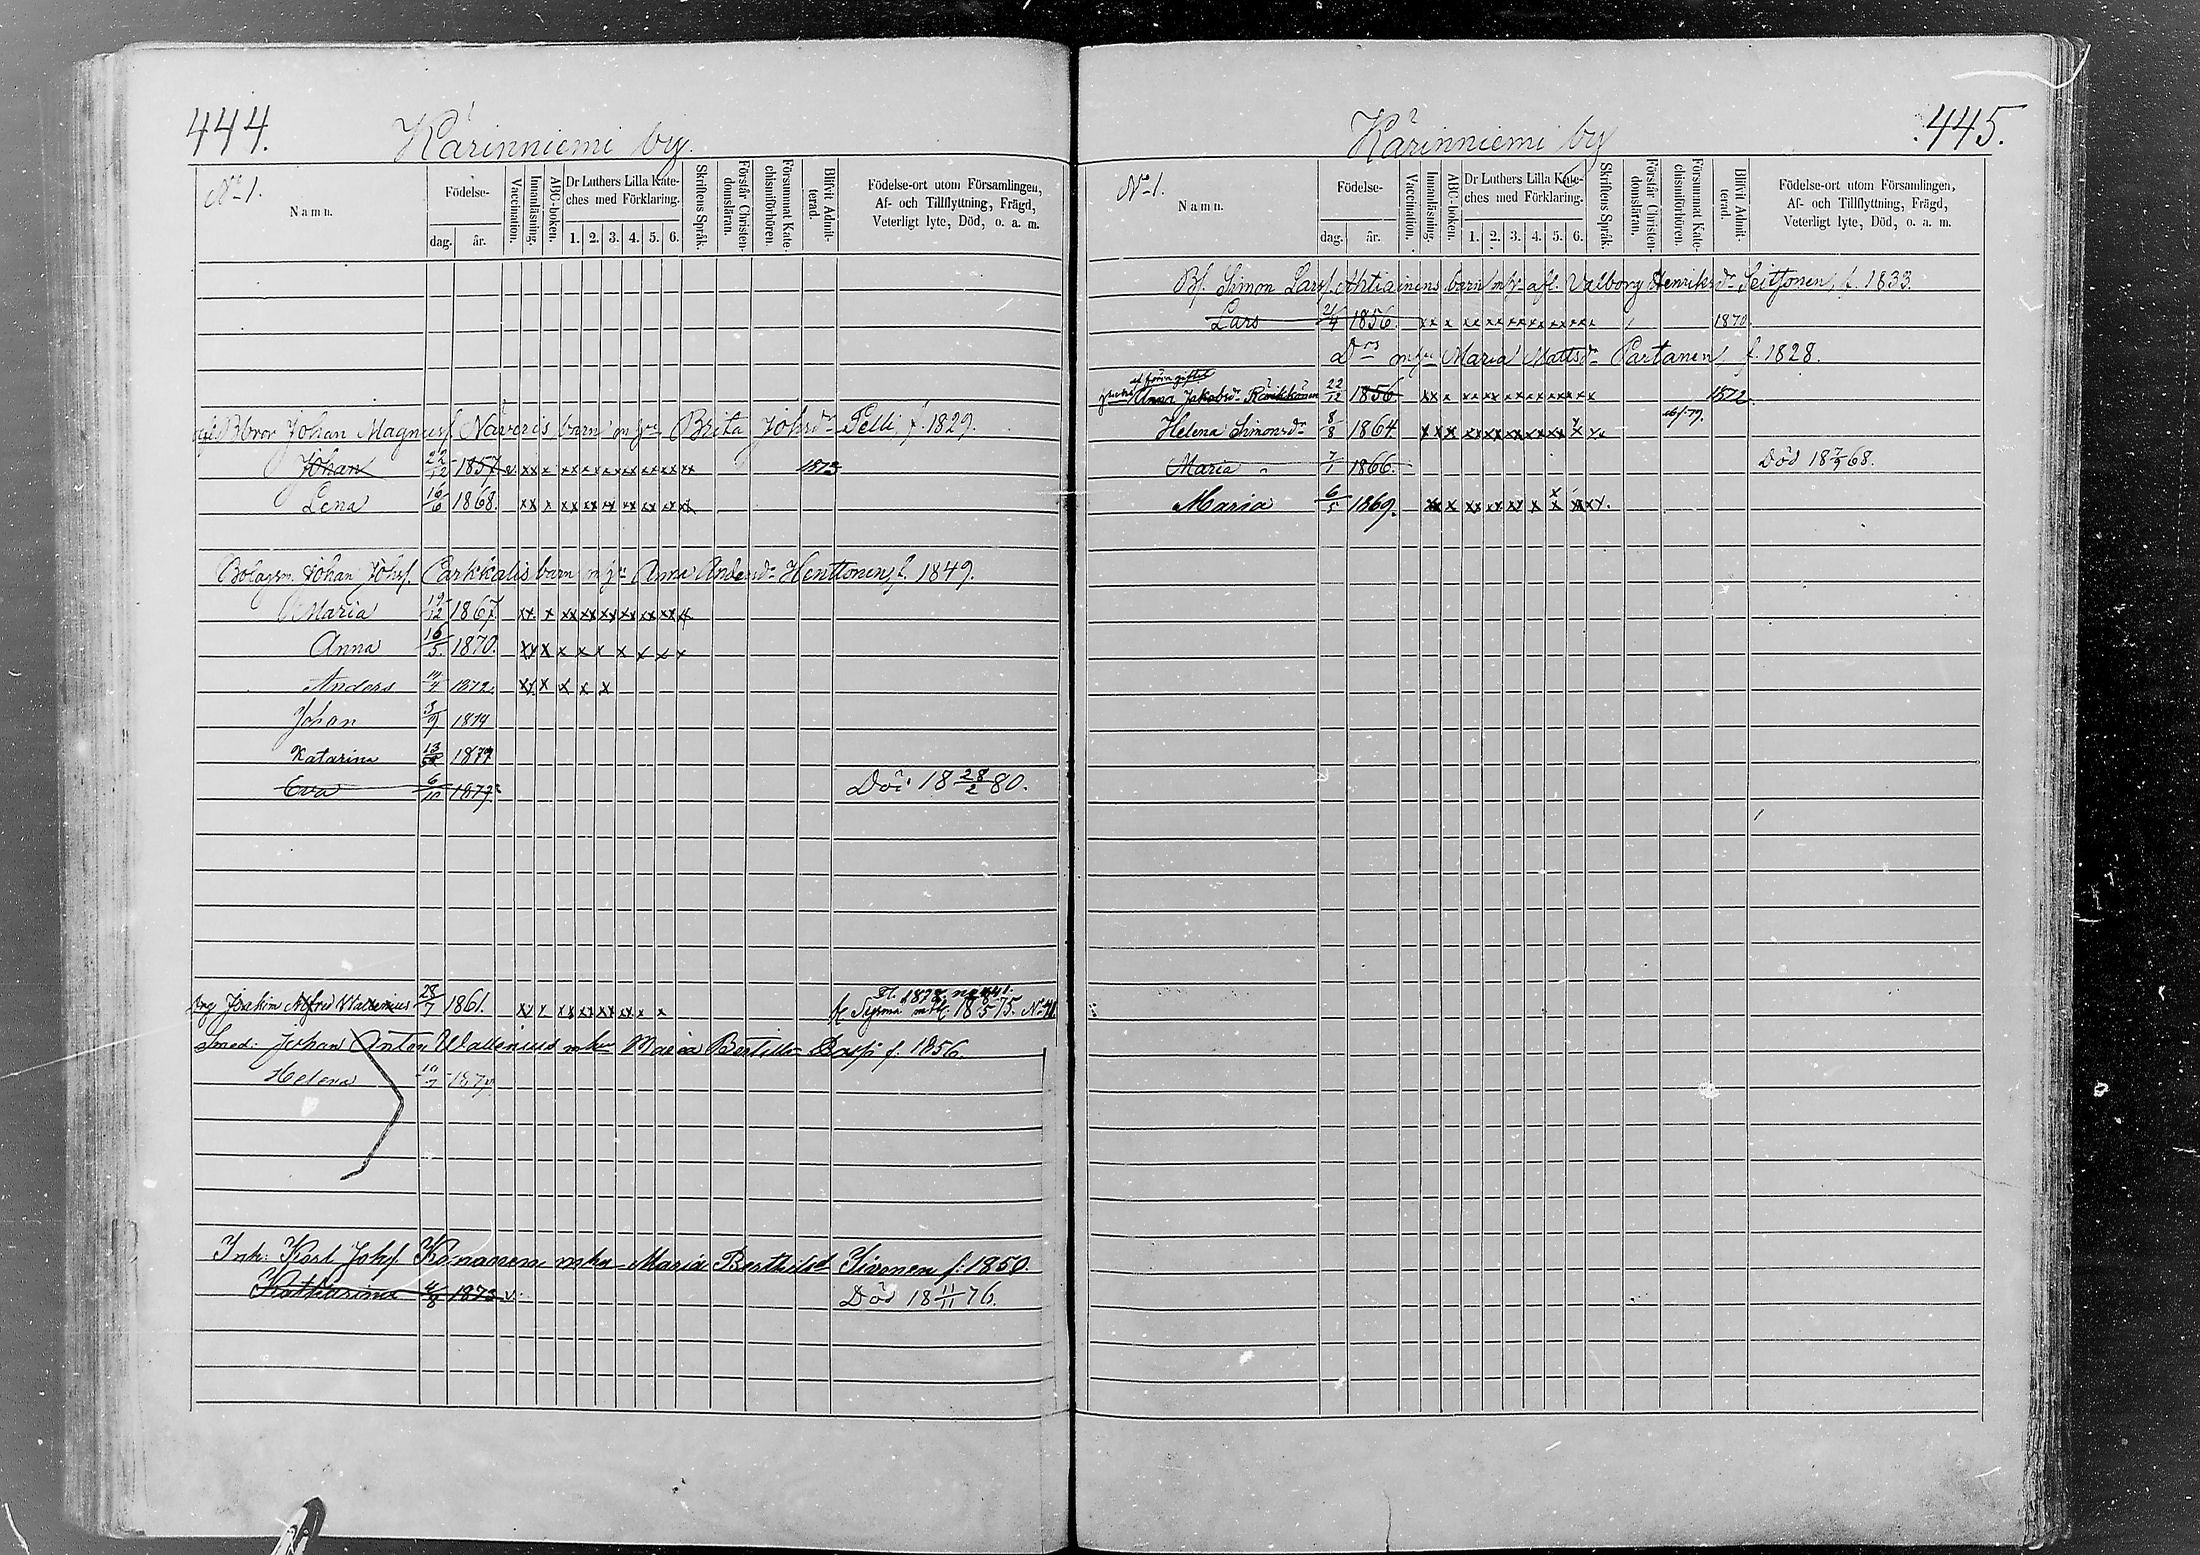 444.
Kärinniemi by.
No 1.
Namn.
Födelse-
dag. år.
Vaccination.
Innanläsning.
ABC-boken.
Dr Luthers Lilla Kate-
ches med Förklaring.
1. 2. 3. 4. 5. 6.
Skriftens Språk.
Förstår Christen-
domsläran.
Försummat Kate-
chismiförhören.
Blifvit Admit-
terad.
Födelse-ort utom Församlingen,
Af- och Tillflyttning, Frägd,
Veterligt lyte, Död, o. a. m.
Johan Magnusf Näveris barn m hu Brita Johsdr Pelli, f. 1829.
Johan 22/12 1857 v xx x xx x x xx xx xx xx 1873
Lena 16/6 1868. xx x xx xx xx xx xx xx x
Bolagsm. Johan Johsf. Parkkalis barn m hu Anna Andersdr Henttonen, f. 1849.
Maria 19/12 1867. xx x xx xx xx xx xx xx x
Anna 16/5 1870. xx x x x x x x x x
Anders 1872. xx x x x x
Johan 3/9 1874
Katarina 13 1877
Eva 6/10 1879 Död 18 28/2 80.
Joakim Alfred Wallenius 28/7 1861. xx x xx xx xx xx x x 18 75. No 41
Smed: Johan Anton Wallenius m hu Maria Bertilsdr f. 1856.
Helena
Inh: Karl Johsf. m hu Maria Berthilsd f: 1850.
Katharina 4/8 1873 v. Död 18 11/11 76.
445.
Kärinniemi by
No 1.
Namn.
Födelse-
dag. år.
Vaccination.
Innanläsning.
ABC-boken.
Dr Luthers Lilla Kate-
ches med Förklaring.
1. 2. 3. 4. 5. 6.
Skriftens Språk.
Förstår Christen-
domsläran.
Försummat Kate-
chismiförhören.
Blifvit Admit-
terad.
Födelse-ort utom Församlingen,
Af- och Tillflyttning, Frägd,
Veterligt lyte, Död, o. a. m.
Bf. Simon Larsf. Ahtiainens barn m hu afl. Valborg Henriksdr Seitsonen, f. 1833.
Lars 21/4 1856. xx x xx xx xx xx xx xx x 1870.
Drs m hu Maria Mattsdr Partanen, f. 1828.
Anna Jakobsdr Räikkönen 22/12 1856 xx x xx xx xx xx xx xx x 1872
Helena Simonsdr 8/8 1864 xx x xx xx xx xx xx x xx
Maria 7/1 1866. Död 18 7/9 68.
Maria 6/5 1869. xx x xx xx xx x x xx x